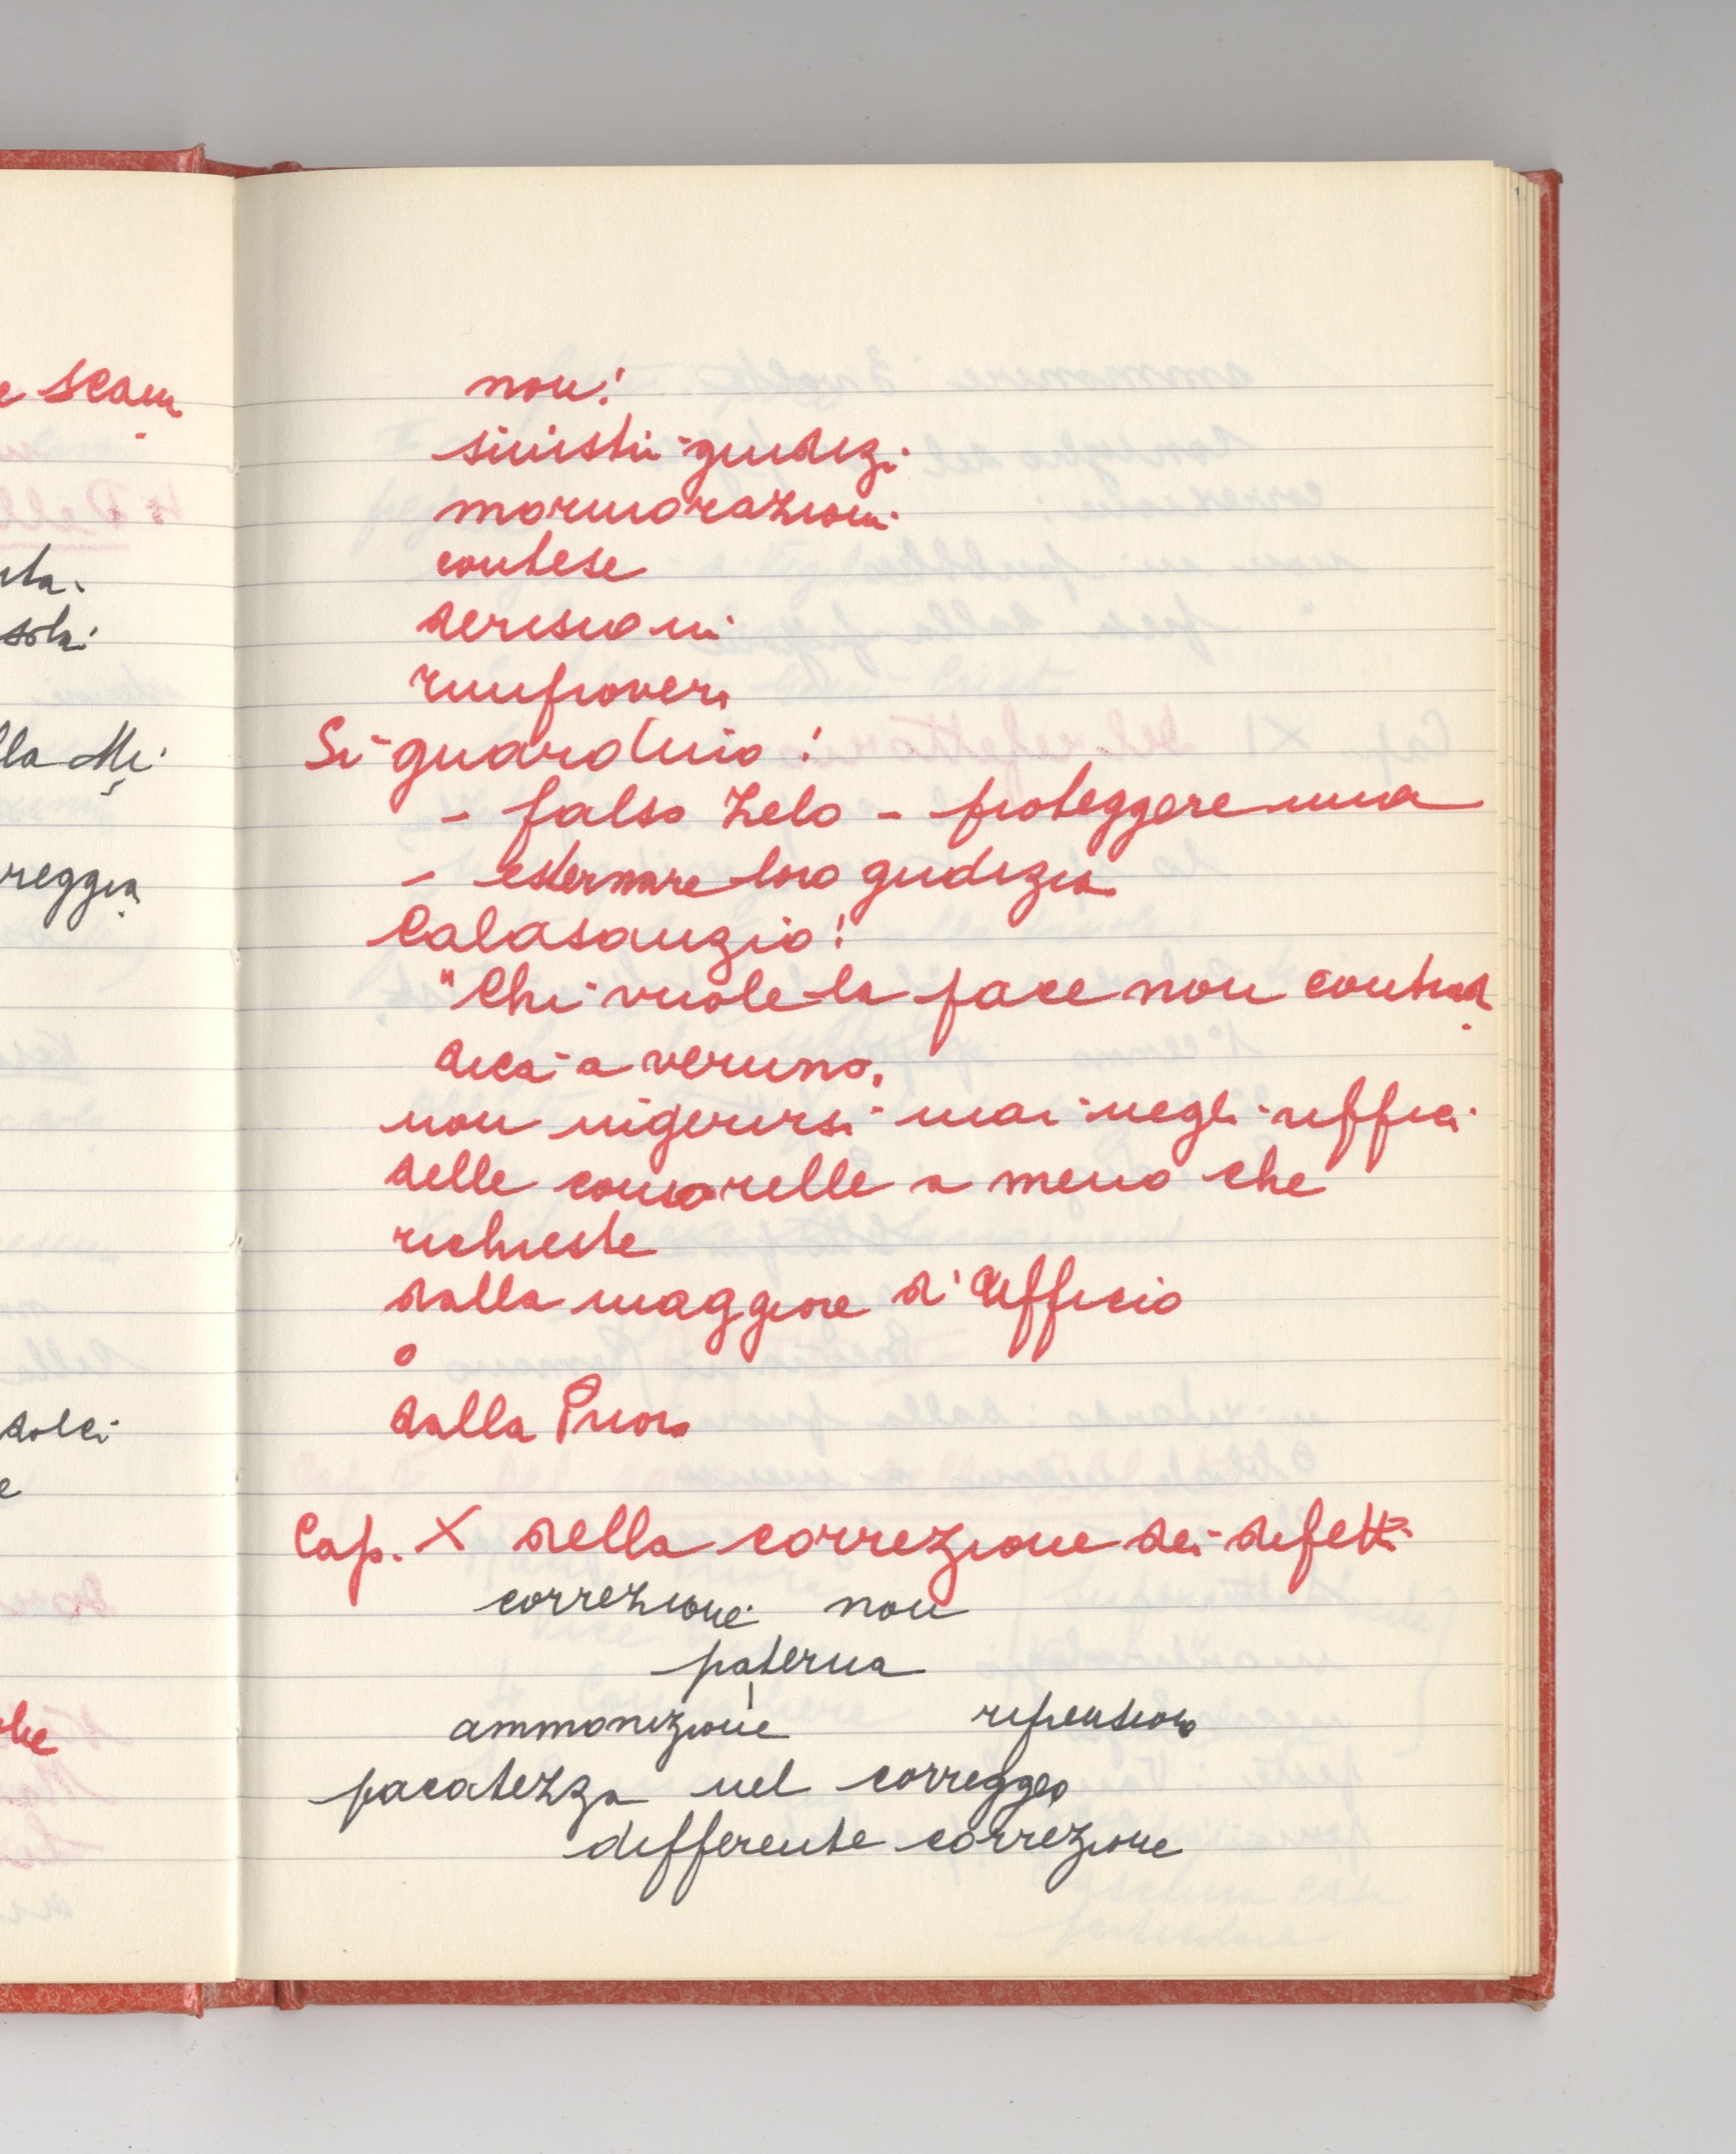 e scam
ita.
soli
lla M.
reggia
dolci
e
che
non!
sinistri giudizi
mormorazioni
contese
derisioni
rimproveri
Si guardino!
- falso zelo - proteggere una
- esternare loro giudizio
Calasanzio!
"Chi vuole la pace non contrad
dica a veruno.
non ingerirsi mai negli uffici
delle consorelle a meno che
richieste
dalla maggiore d'Ufficio
o
dalla Priora
Cap. X della correzione dei difetti
correzione non
paterna
ammonizione riprensione
pacatezza nel correggere
differente correzione